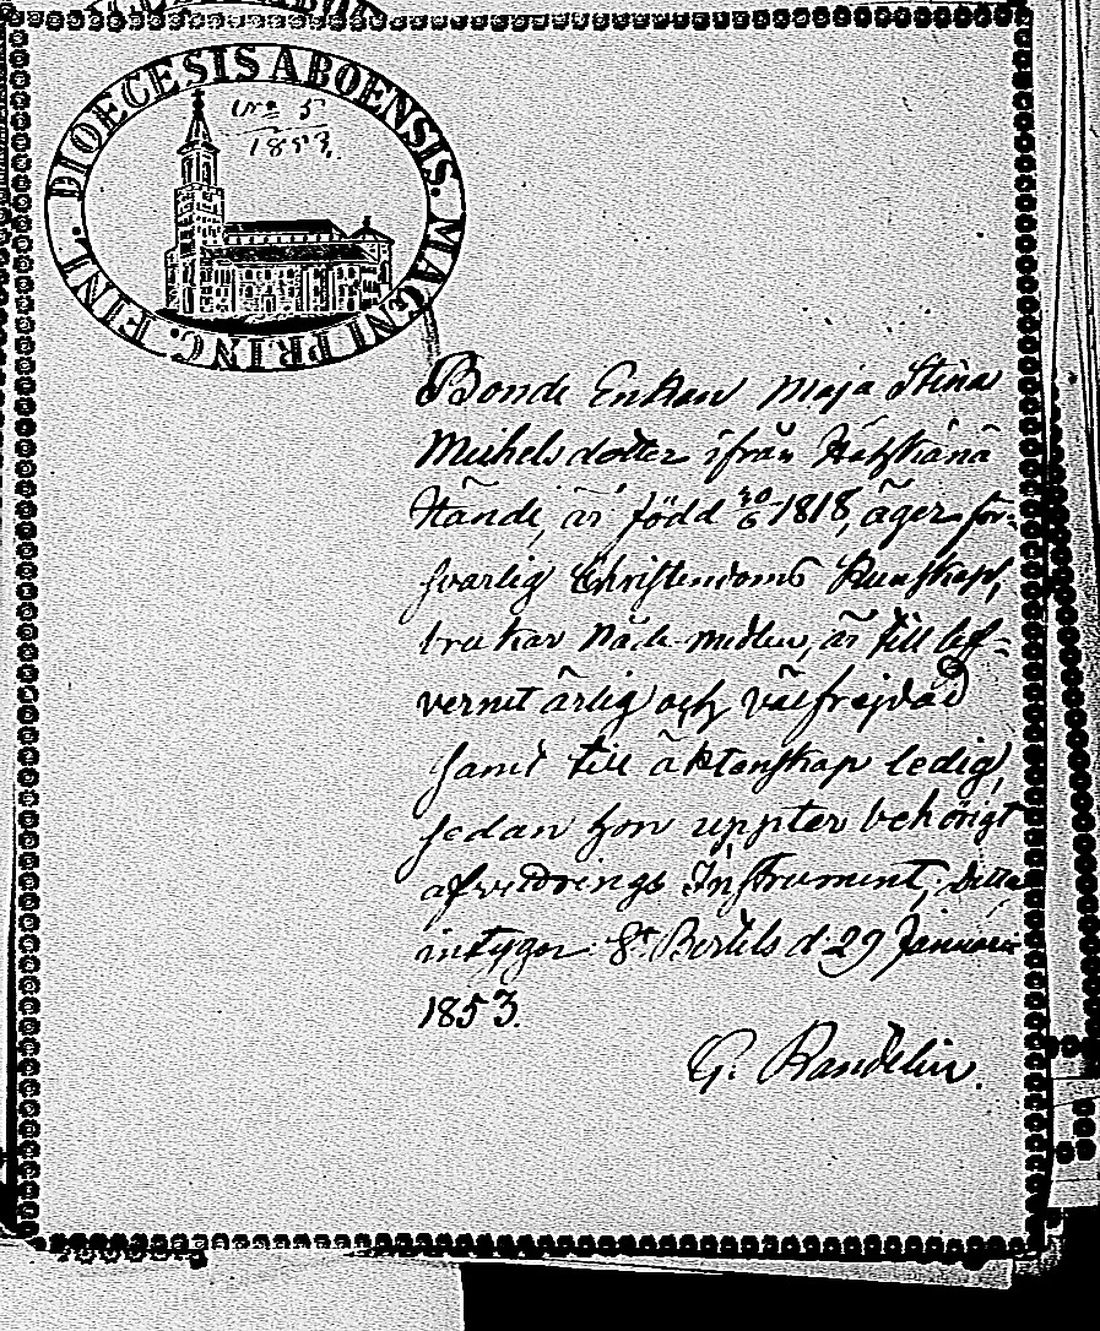 DIOECESIS ABOENSIS. MAGNI PRINC. FINL.
No 5
1853.
Bonde Enkan Maja Stina
Michelsdotter ifrån
är född 30/6 1818, äger för-
svarlig Christendoms Kunskap,
brukar Nåde-medlen, är till lef-
vernet ärlig och välfrejdad
samt till äktenskap ledig,
sedan hon uppter behörigt
afvittrings Instrument, Detta
intygar. St Bertils d. 29 Januarii
1853.
G. Randelin.